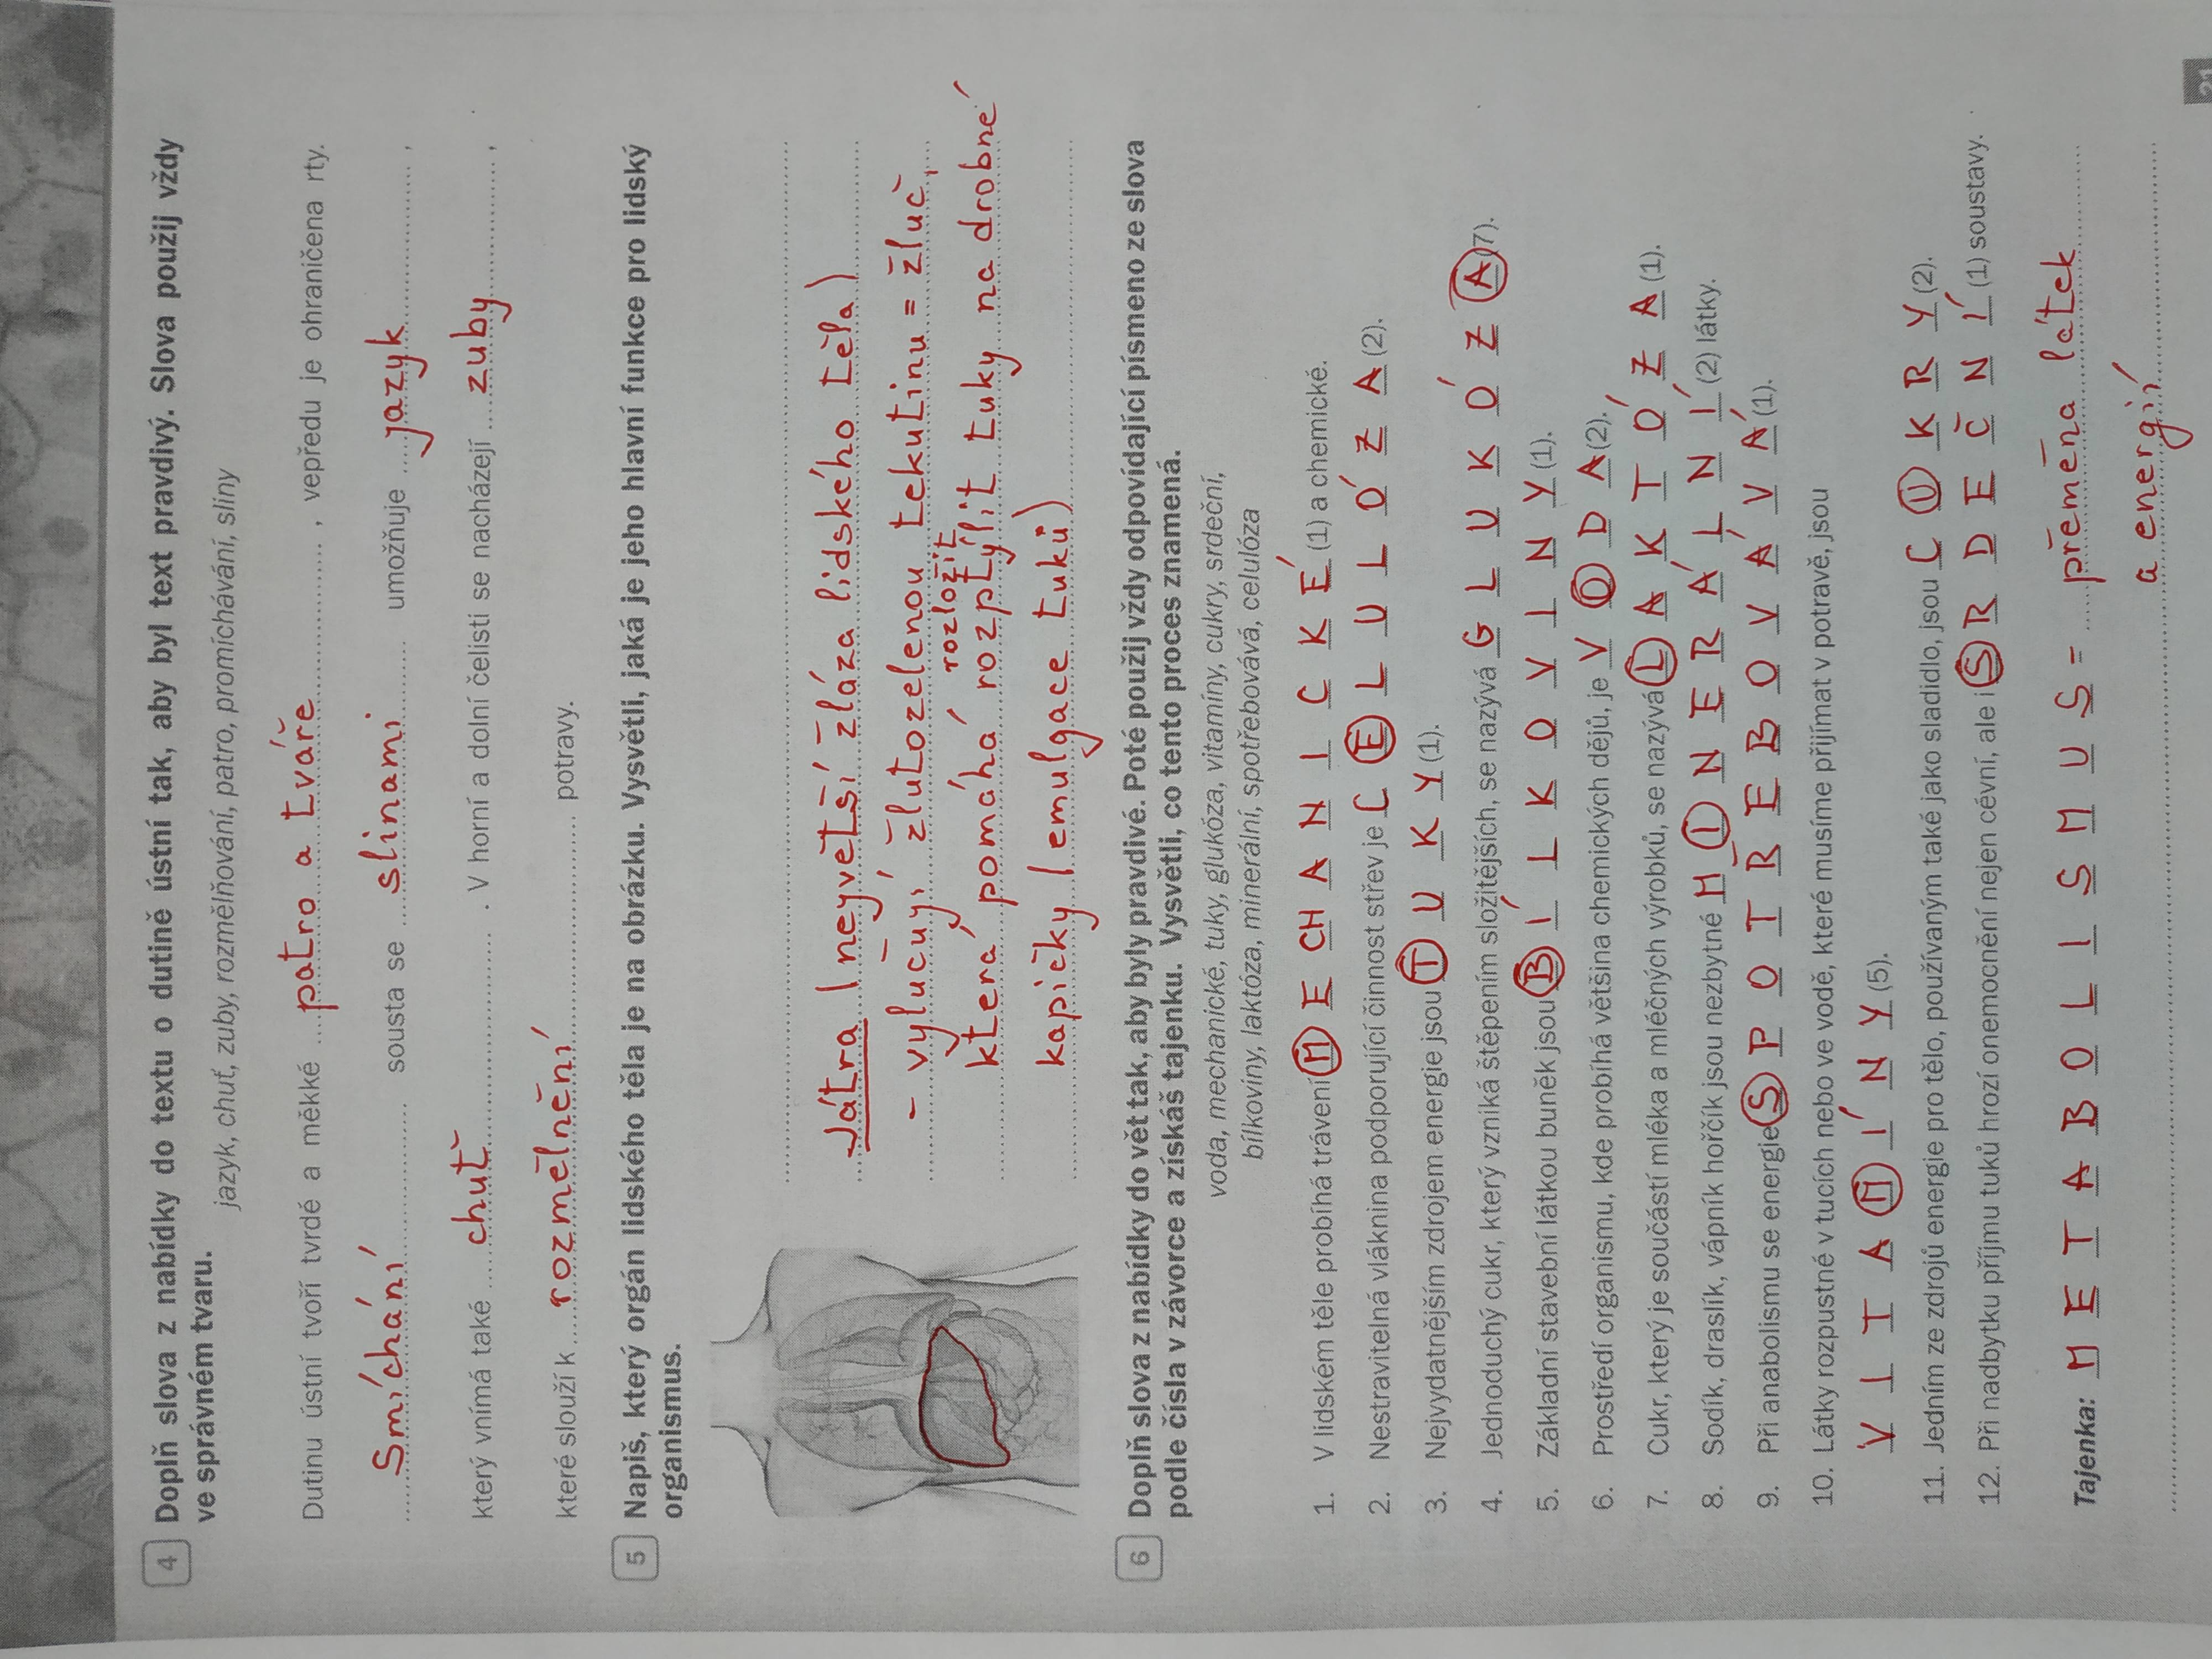 4 Doplň slova z nabídky do textu o dutině ústní tak, aby byl text pravdivý. Slova použij vždy
ve správném tvaru.
jazyk, chuť, zuby, rozmělňování, patro, promíchávání, sliny
Dutinu ústní tvoří tvrdé a měkké patro a tváře, vepředu je ohraničena rty.
Smíchání sousta se slinami umožňuje jazyk,
který vnímá také chuť. V horní a dolní čelisti se nacházejí zuby,
které slouží k rozmělnění potravy.
5 Napiš, který orgán lidského těla je na obrázku. Vysvětli, jaká je jeho hlavní funkce pro lidský
organismus.
Játra (největší žláza lidského těla)
- vylučují žlutozelenou tekutinu = žluč,
rozložit
která pomáhá rozptýlit tuky na drobné
kapičky (emulgace tuků)
6 Doplň slova z nabídky do vět tak, aby byly pravdivé. Poté použij vždy odpovídající písmeno ze slova
podle čísla v závorce a získáš tajenku. Vysvětli, co tento proces znamená.
voda, mechanické, tuky, glukóza, vitamíny, cukry, srdeční,
bílkoviny, laktóza, minerální, spotřebovává, celulóza
1. V lidském těle probíhá trávení M E CH A N I C K É (1) a chemické.
2. Nestravitelná vláknina podporující činnost střev je C E L U L Ó Z A (2).
3. Nejvydatnějším zdrojem energie jsou T U K Y (1).
4. Jednoduchý cukr, který vzniká štěpením složitějších, se nazývá G L U K Ó Z A (7).
5. Základní stavební látkou buněk jsou B Í L K O V I N Y (1).
6. Prostředí organismu, kde probíhá většina chemických dějů, je V O D A (2).
7. Cukr, který je součástí mléka a mléčných výrobků, se nazývá L A K T Ó Z A (1).
8. Sodík, draslík, vápník hořčík jsou nezbytné M I N E R Á L N Í (2) látky.
9. Při anabolismu se energie S P O T Ř E B O V Á V Á (1).
10. Látky rozpustné v tucích nebo ve vodě, které musíme přijímat v potravě, jsou
V I T A M Í N Y (5).
11. Jedním ze zdrojů energie pro tělo, používaným také jako sladidlo, jsou C U K R Y (2).
12. Při nadbytku příjmu tuků hrozí onemocnění nejen cévní, ale i S R D E Č N Í (1) soustavy.
Tajenka: M E T A B O L I S M U S = přeměna látek
a energií
21